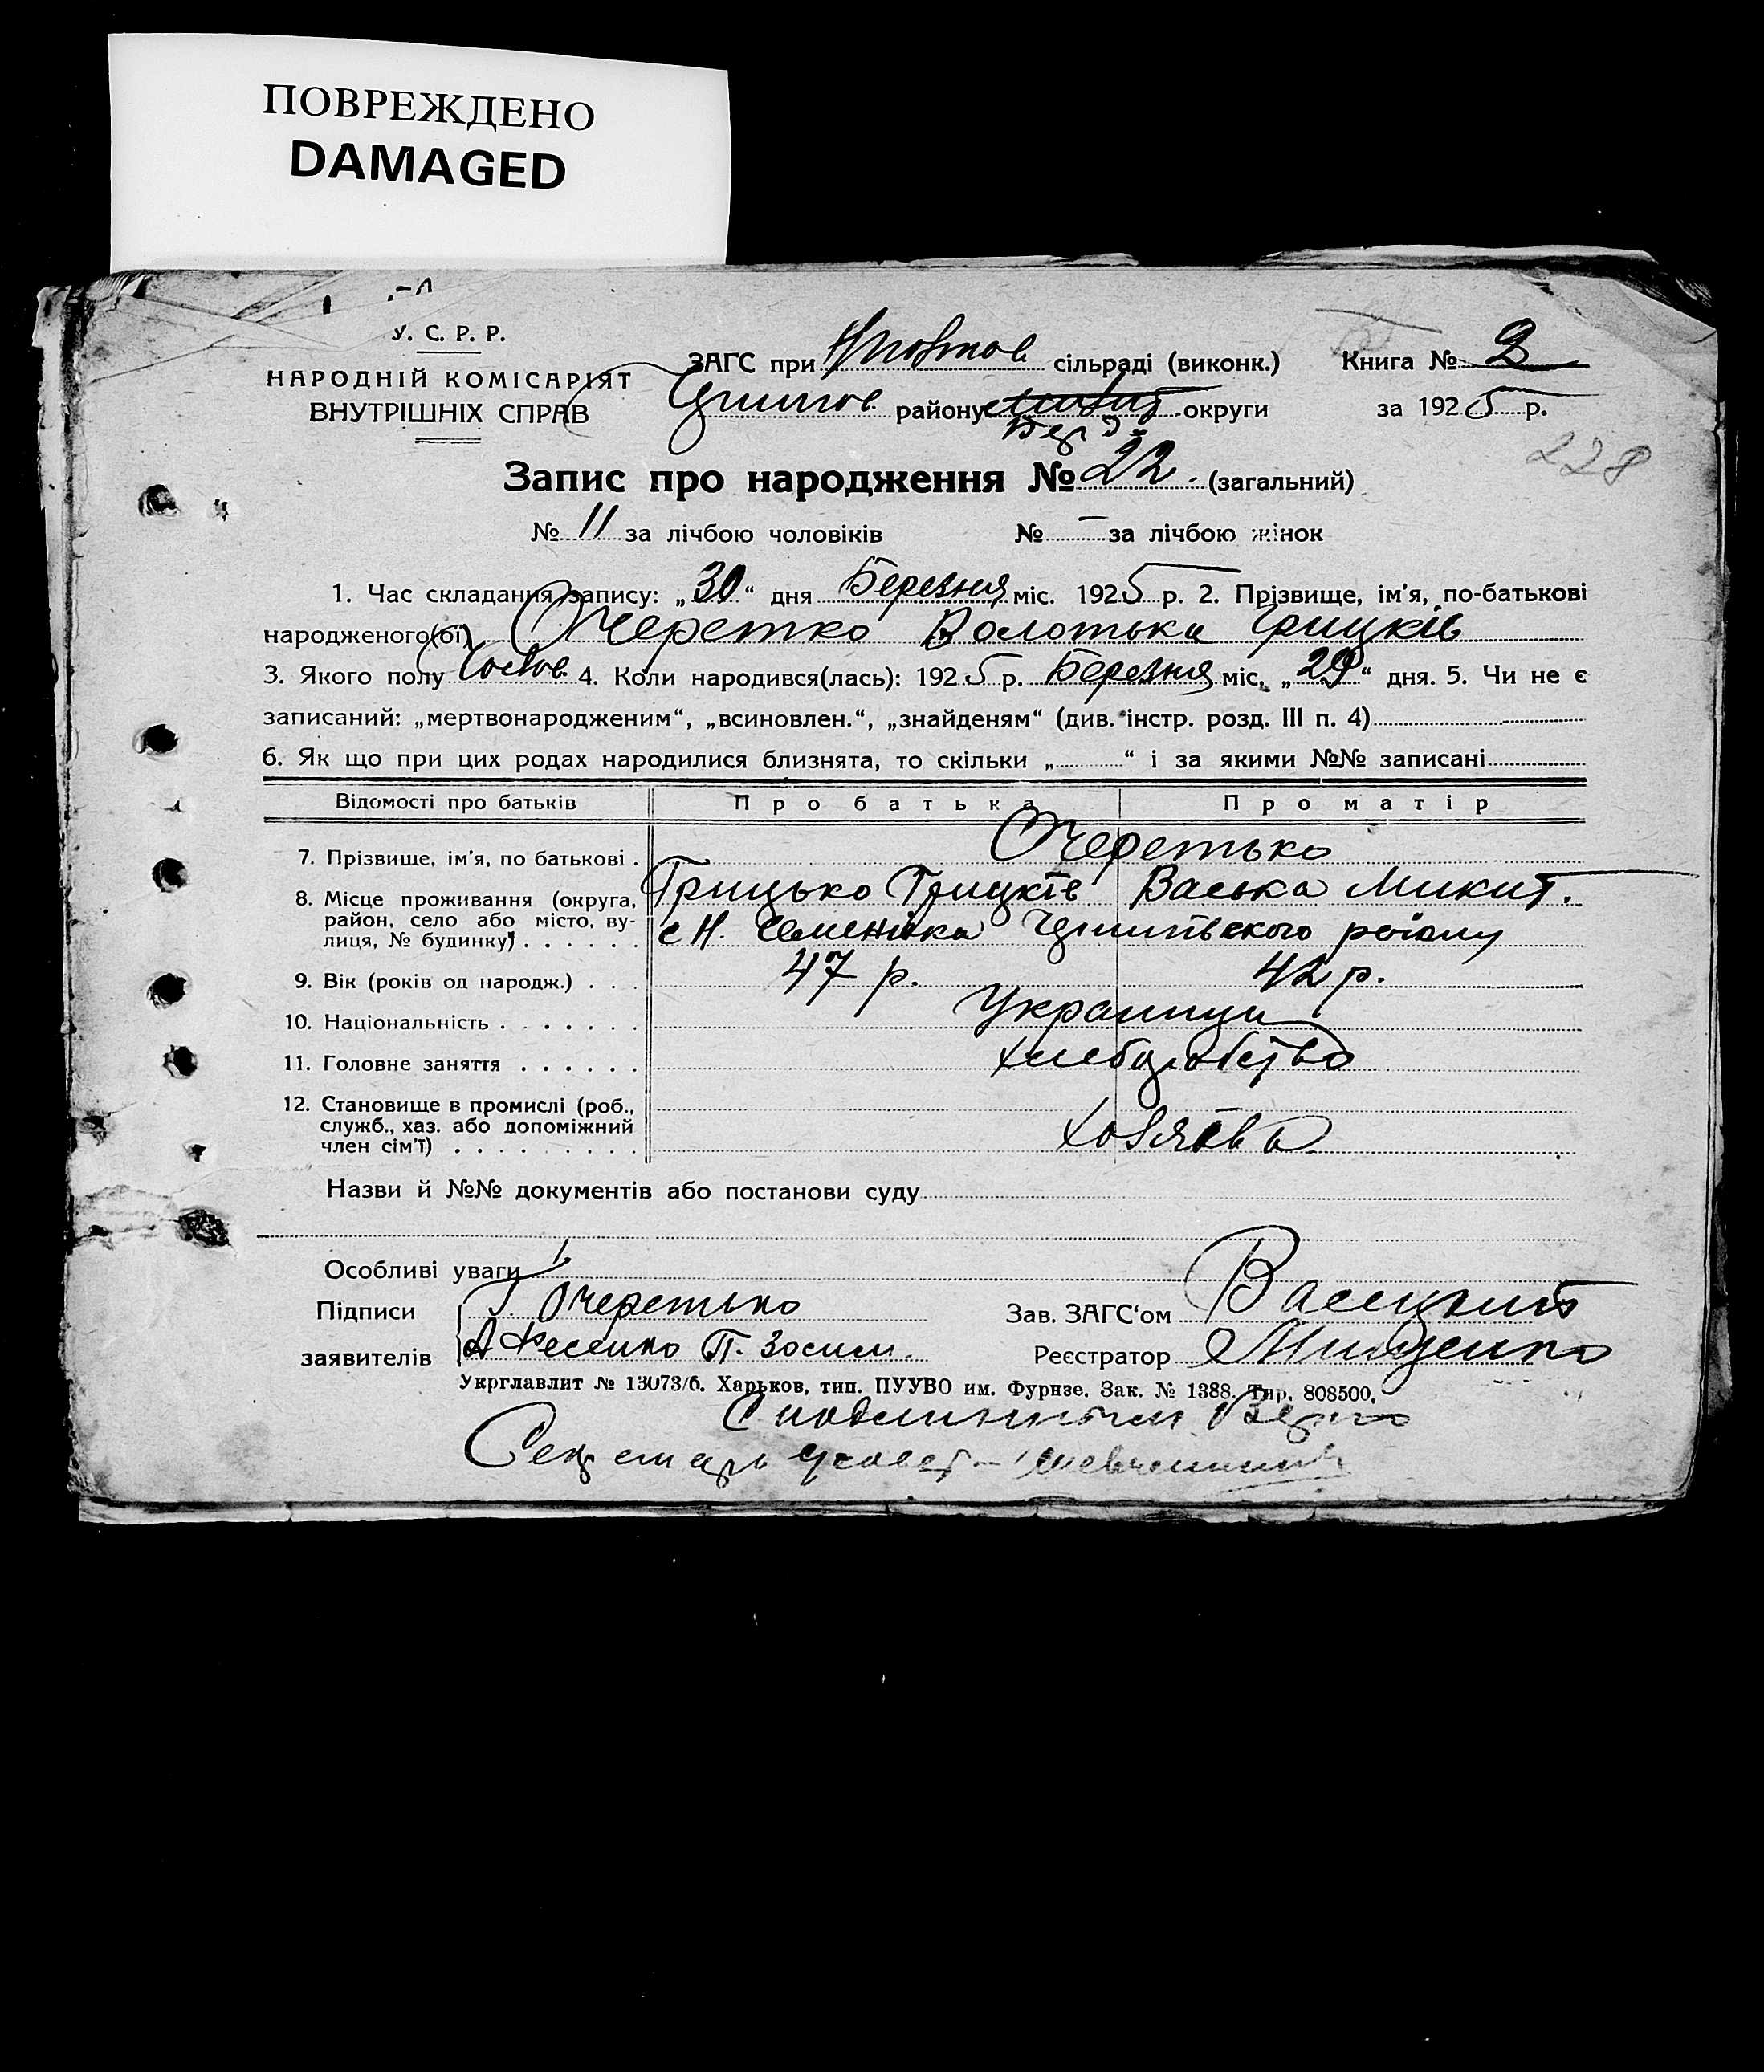 ПОВРЕЖДЕНО
DAMAGED
У. С. Р. Р.
НАРОДНІЙ КОМІСАРІЯТ
ВНУТРІШНІХ СПРАВ
ЗАГС при сільраді (виконк.)
району округи
Книга № 2
за 1925 р.
228
Запис про народження № 22. (загальний)
№ 11 за лічбою чоловіків № — за лічбою жінок
1. Час складання запису: „30“ дня Березня міс. 1925 р. 2. Прізвище, ім’я, по-батькові
народженого(ої) Очеретко Волотька Грицків
3. Якого полу 4. Коли народився(лась): 1925 р. Березня міс. „29“ дня. 5. Чи не є
записаний: „мертвонародженим“, „всиновлен.“, „знайденям“ (див. інстр. розд. III п. 4)
6. Як що при цих родах народилися близнята, то скільки „ “ і за якими №№ записані
Відомості про батьків Про батька Про матір
7. Прізвище, ім’я, по батькові . Очеретько
Грицько Грицків Васька Микит.
8. Місце проживання (округа, район, село або місто, вулиця, № будинку) . . . . . . с Н.
9. Вік (років од народж.) . . . 47 р. 42 р.
10. Національність . . . . . . . Украинци
11. Головне заняття . . . . . .
12. Становище в промислі (роб., служб., хаз. або допоміжний член сім’ї) . . . . . . . . .
Назви й №№ документів або постанови суду
Особливі уваги
Підписи Г. Очеретько
заявителів П. Зосим.
Зав. ЗАГС‘ом
Реєстратор Мищенко
Укрглавлит № 13073/6. Харьков, тип. ПУУВО им. Фурнзе. Зак. № 1388. Тир. 808500.
С подлинным Верно
Секретарь